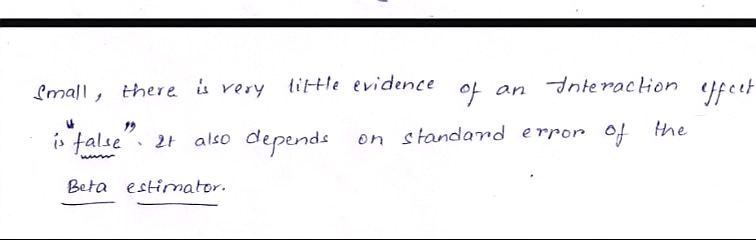 Small, there is very little evidence of an Interaction effect
is "false". It also depends on standard error of the
Beta estimator.